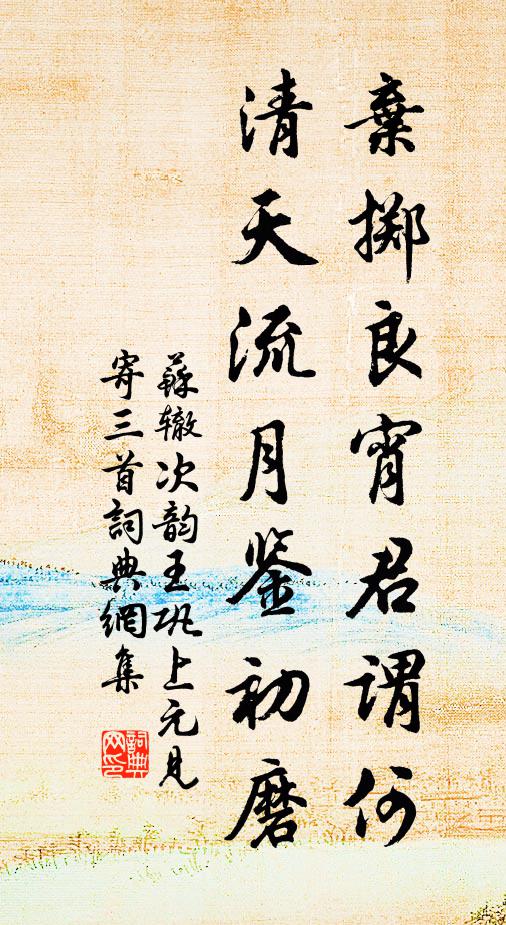 棄掷良宵君谓何
清天流月鉴初磨
蘇辙次韵王巩上元見
寄三首詞典網集
詞典
网印